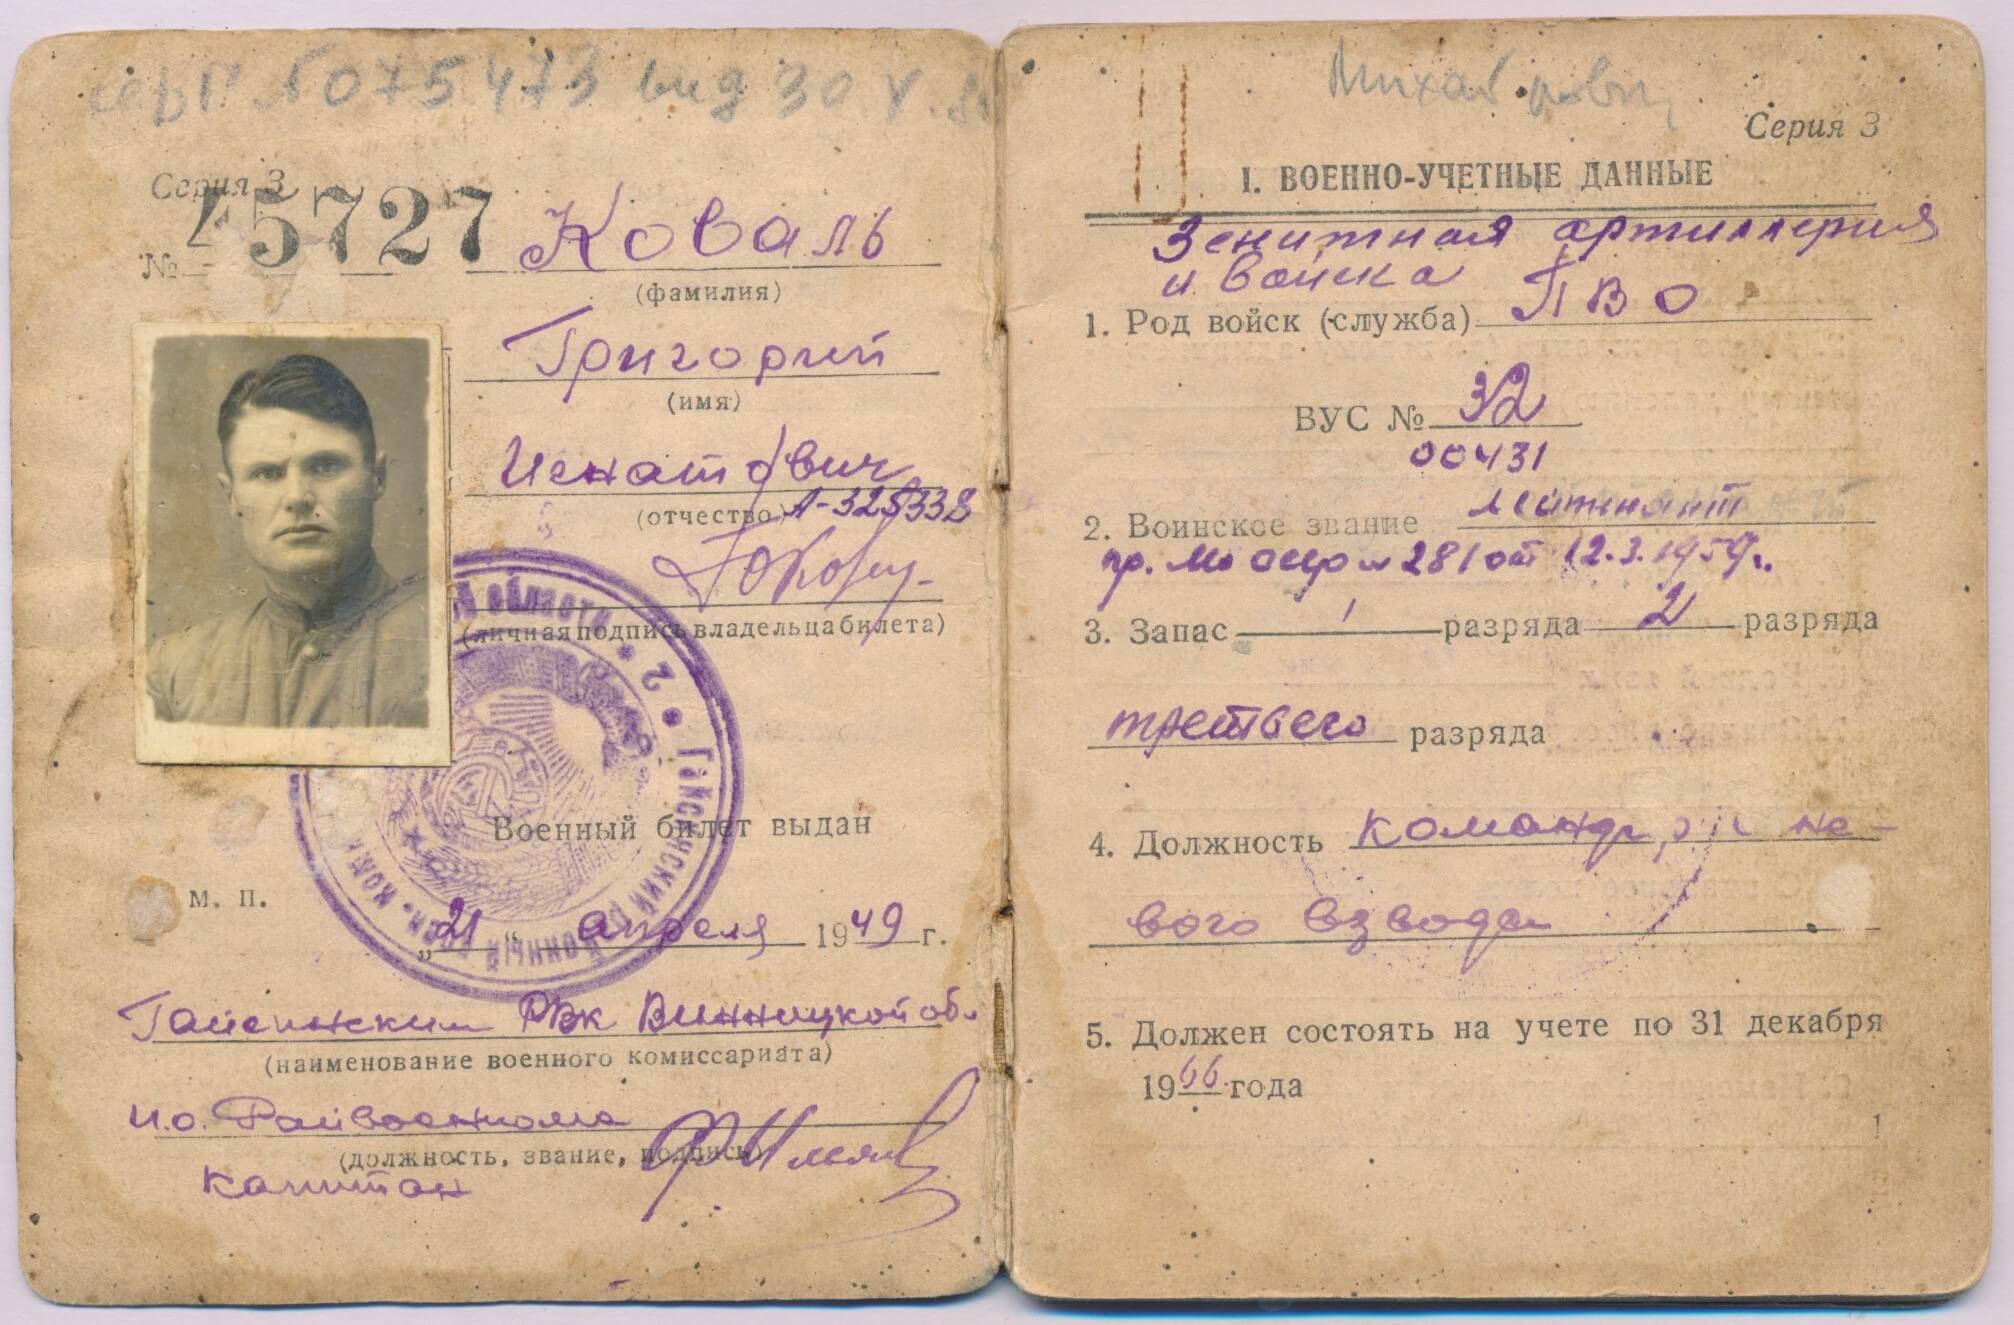 075473 вид 30 V.
Серия 3
№ 45727 Коваль
(фамилия)
Григорий
(имя)
Игнатович
(отчество) А-325338
(личная подпись владельца билета)
области * 2 * Гайсинский
Военный билет выдан
м. п.
„21„ апреля 1949 г.
Гайсинским РВк Винницкой обл
(наименование военного комиссариата)
и.о. Райвоенкома
(должность, звание, подпись)
капитан
Серия 3
I. ВОЕННО-УЧЕТНЫЕ ДАННЫЕ
Зенитная артиллерия
и войска
1. Род войск (служба) ПВО
ВУС № 32
00431
2. Воинское звание лейтенант
пр. № 281 от 12.3.1959г.
3. Запас 1 разряда 2 разряда
третьего разряда
4. Должность командир
вого взвода
5. Должен состоять на учете по 31 декабря
1966 года
1